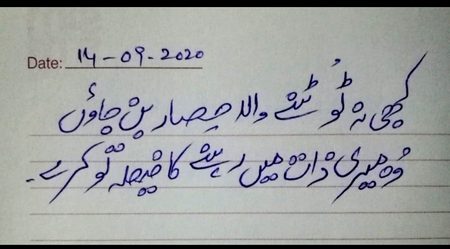 Date: 14-09-2020
کبھی نہ ٹُوٹنے والا حصار بن جاؤں
وُہ میری ذات میں رہنے کا فیصلہ تُو کرے۔